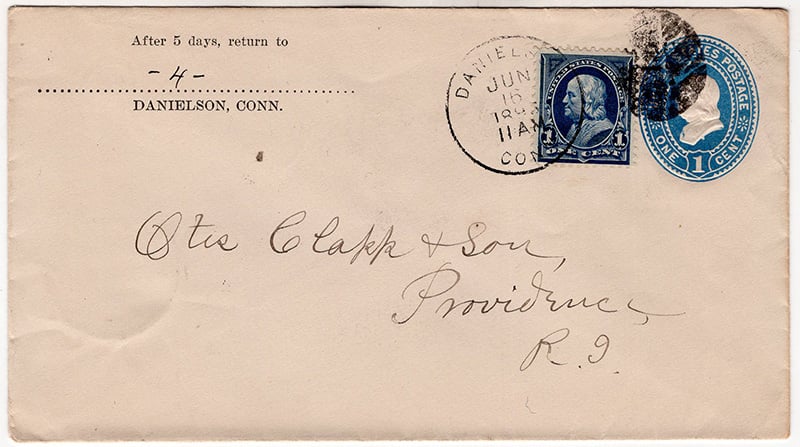 After 5 days, return to
- 4 -
DANIELSON, CONN.
JUN
16
11 AM
UNITED STATES POSTAGE
1 1
ONE CENT
POSTAGE
ONE 1 CENT
Otis Clapp & Son,
Providence,
R. I.